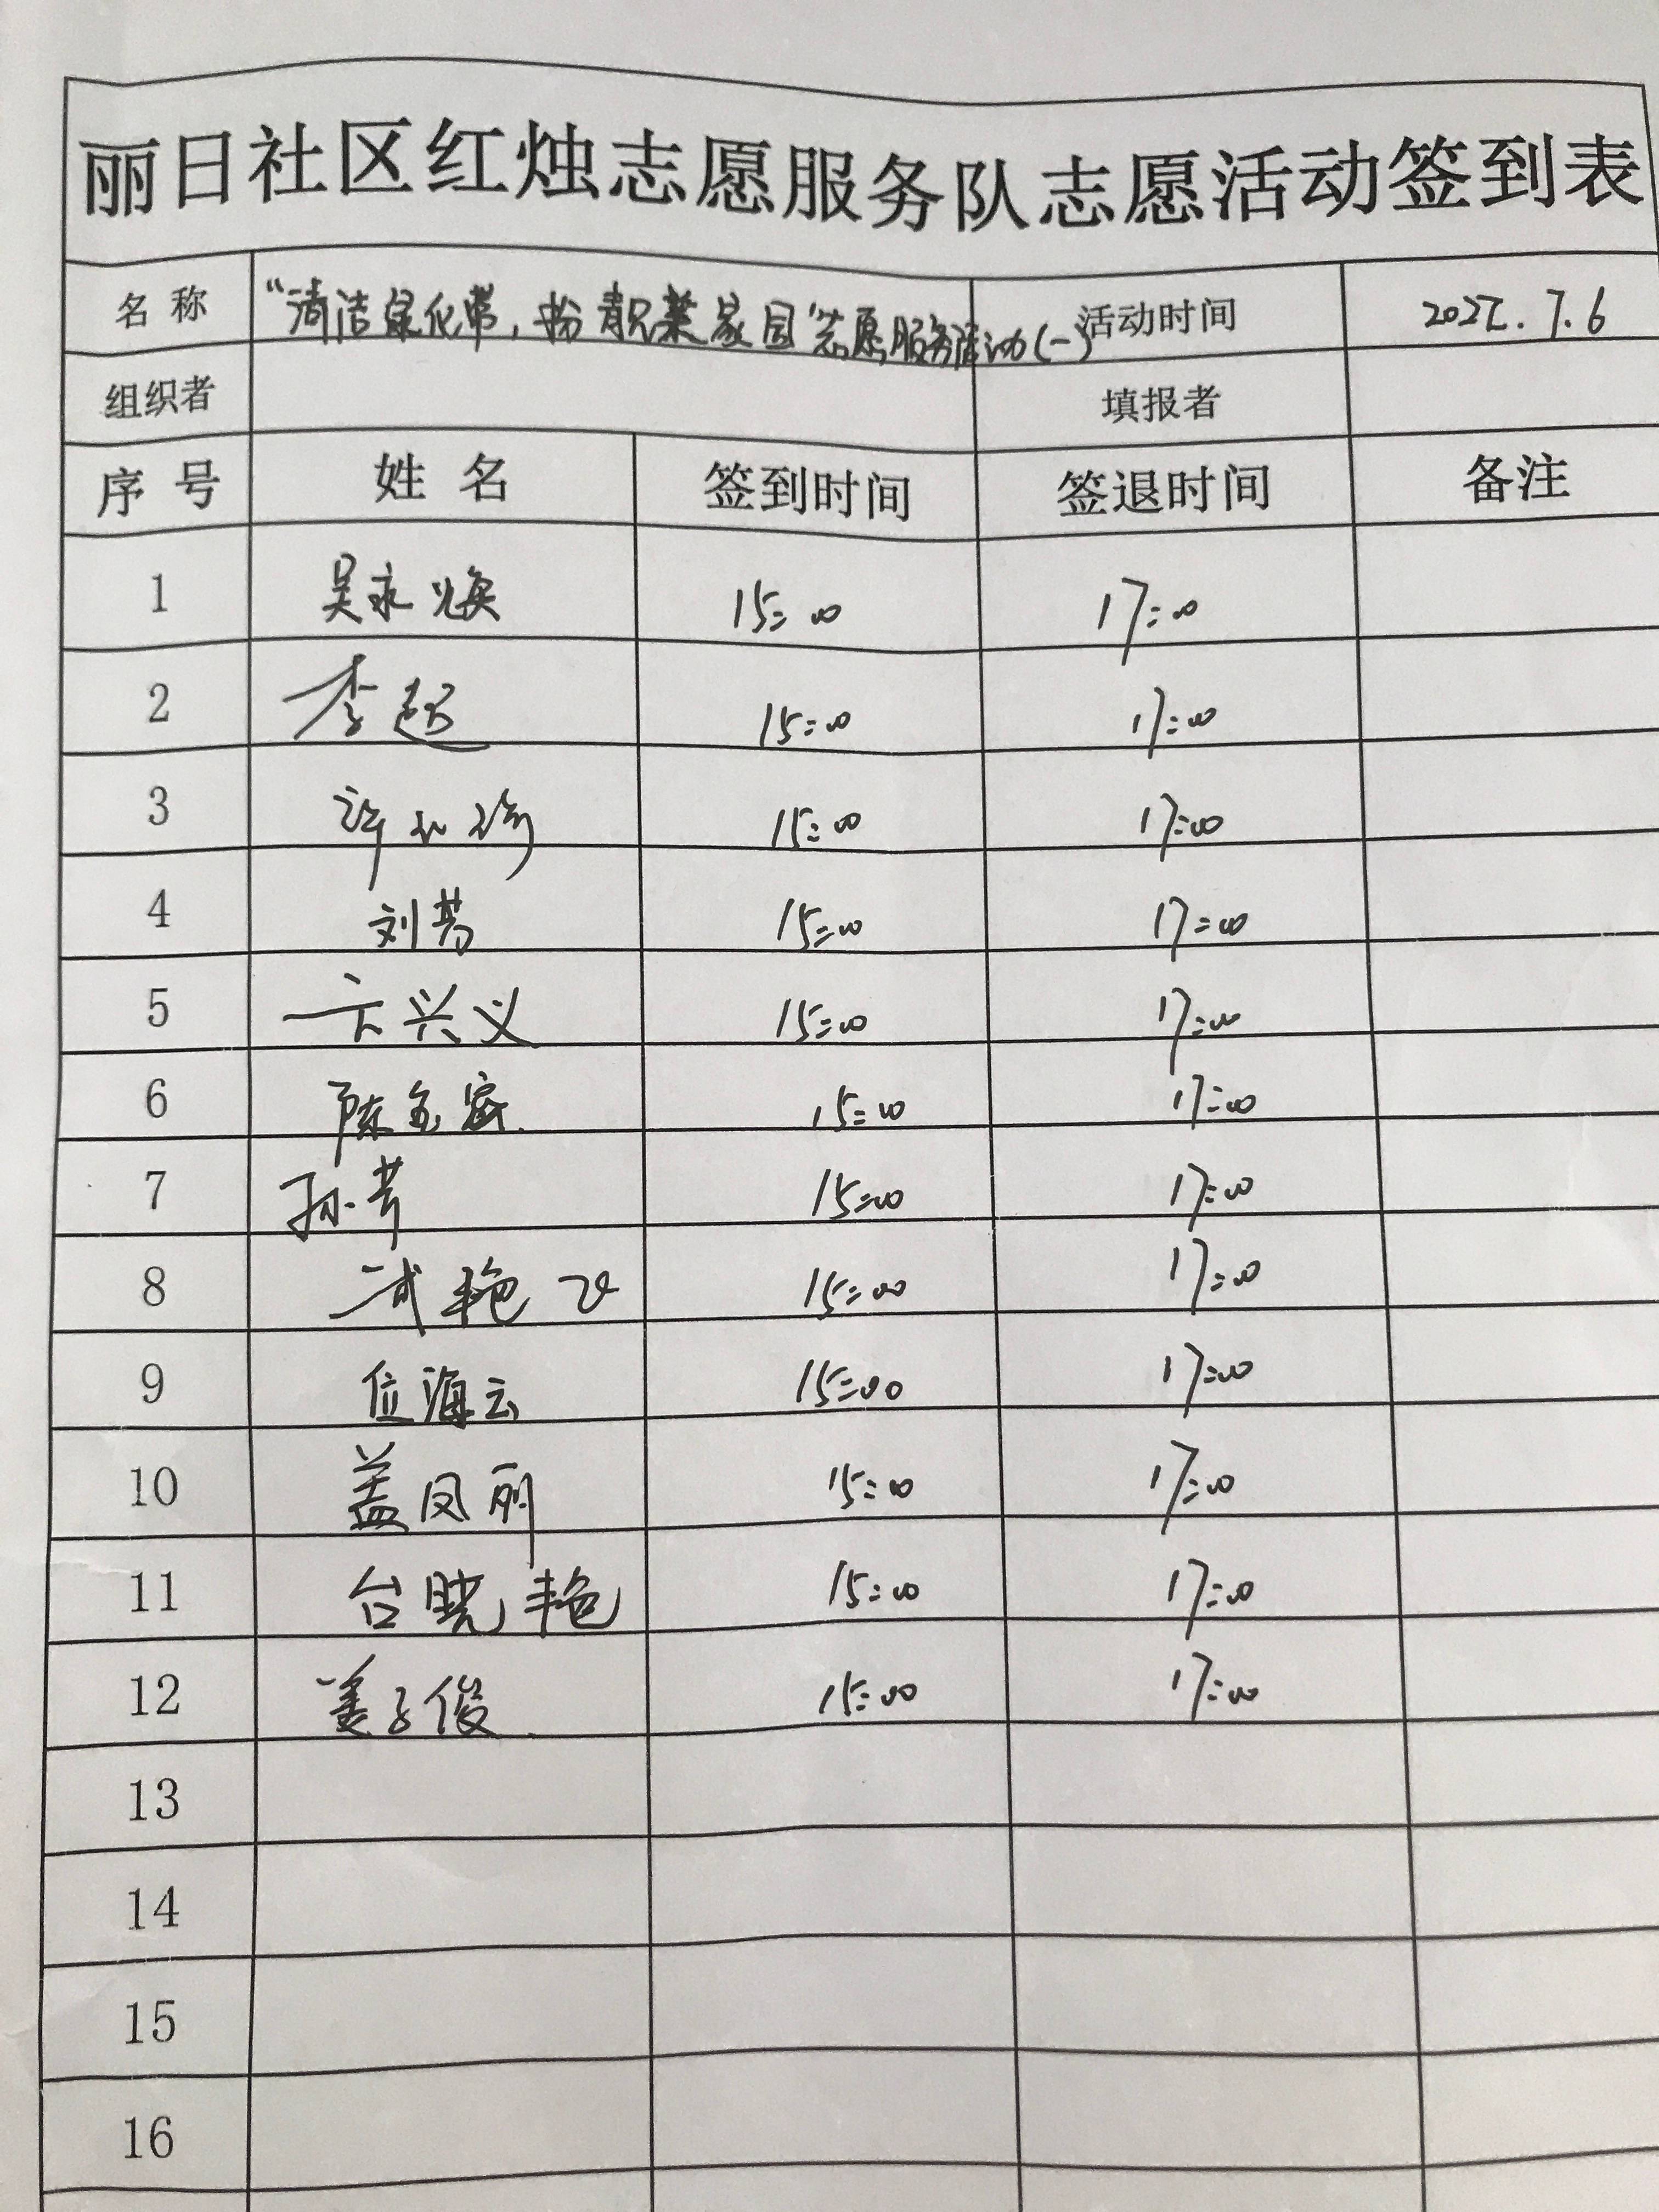 丽日社区红烛志愿服务队志愿活动签到表
名称 “清洁绿化带，扮靓美家园”志愿服务活动(一) 活动时间 2022.7.6
组织者 填报者
序号 姓名 签到时间 签退时间 备注
1 吴永焕 15:00 17:00
2 李超 15:00 17:00
3 许 15:00 17:00
4 刘芳 15:00 17:00
5 兴义 15:00 17:00
6 陈 15:00 17:00
7 孙芳 15:00 17:00
8 武艳飞 15:00 17:00
9 位海云 15:00 17:00
10 盖凤丽 15:00 17:00
11 台晓艳 15:00 17:00
12 姜子俊 15:00 17:00
13
14
15
16